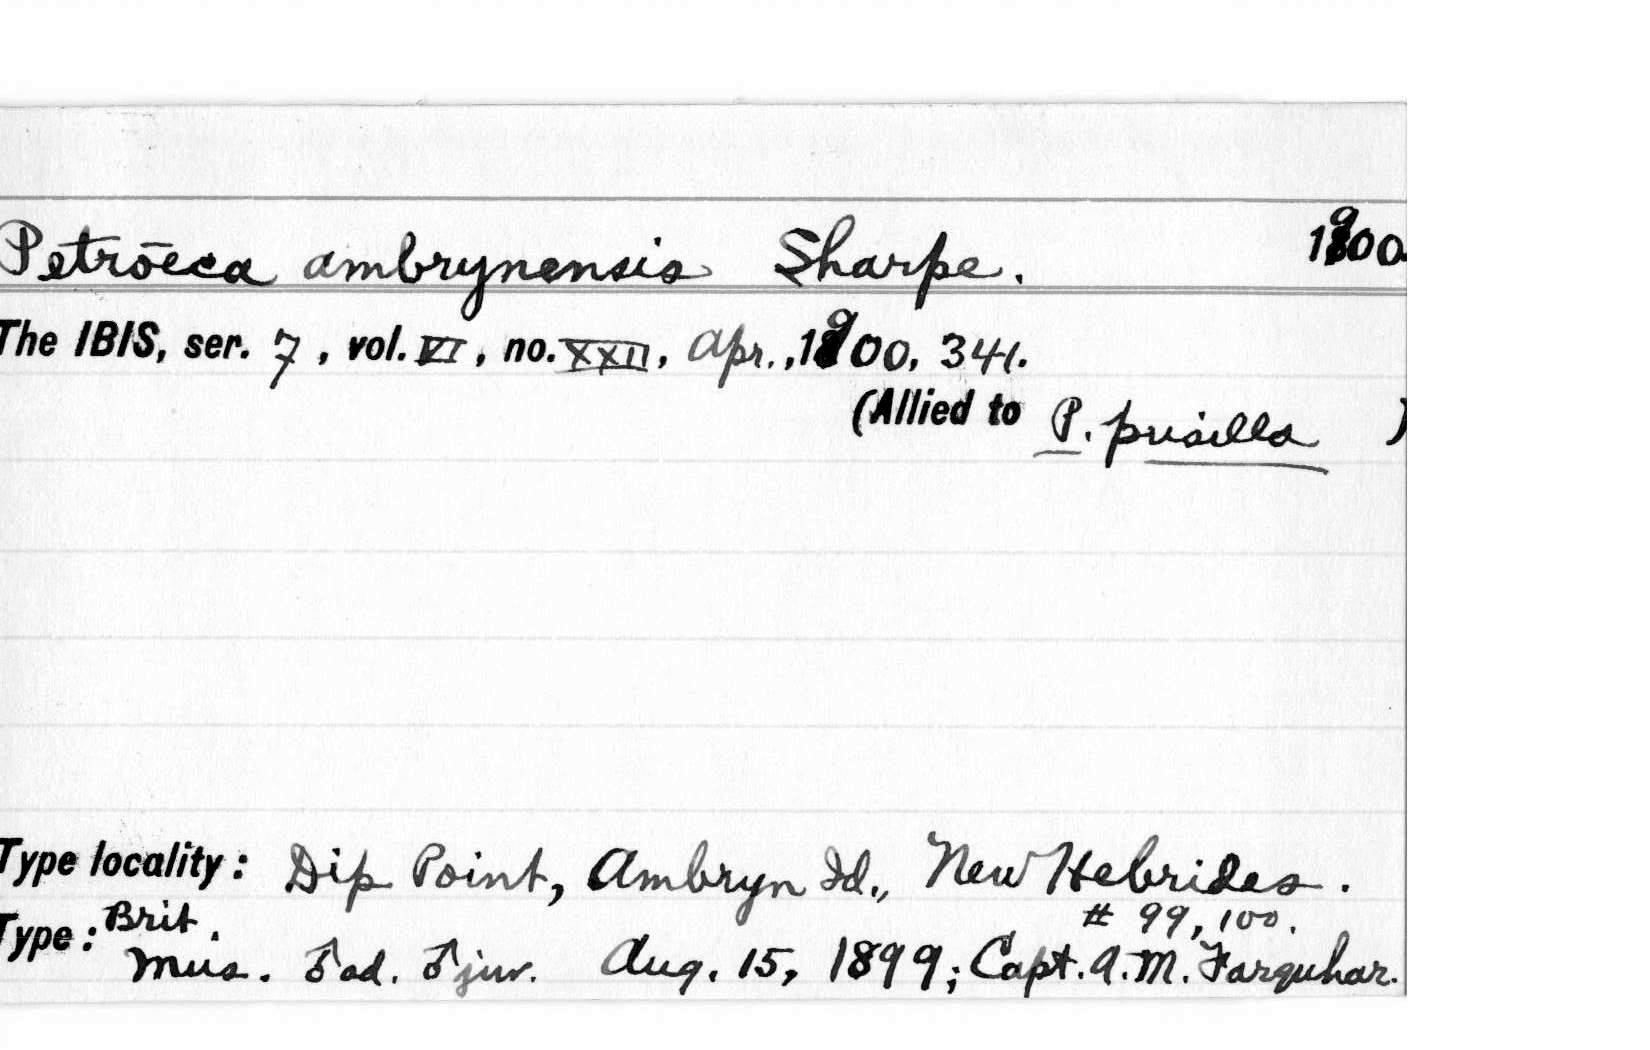 Petrōeca ambrynensis Sharpe. 1900
The IBIS, ser. 7, vol. VI, no. XXII, Apr., 1900, 341.
(Allied to P. pusilla )
Type locality: Dip Point, Ambryn Id., New Hebrides.
# 99, 100.
Type: Brit. Mus. ♂ ad. ♂ juv. Aug. 15, 1899; Capt. A. M. Farquhar.